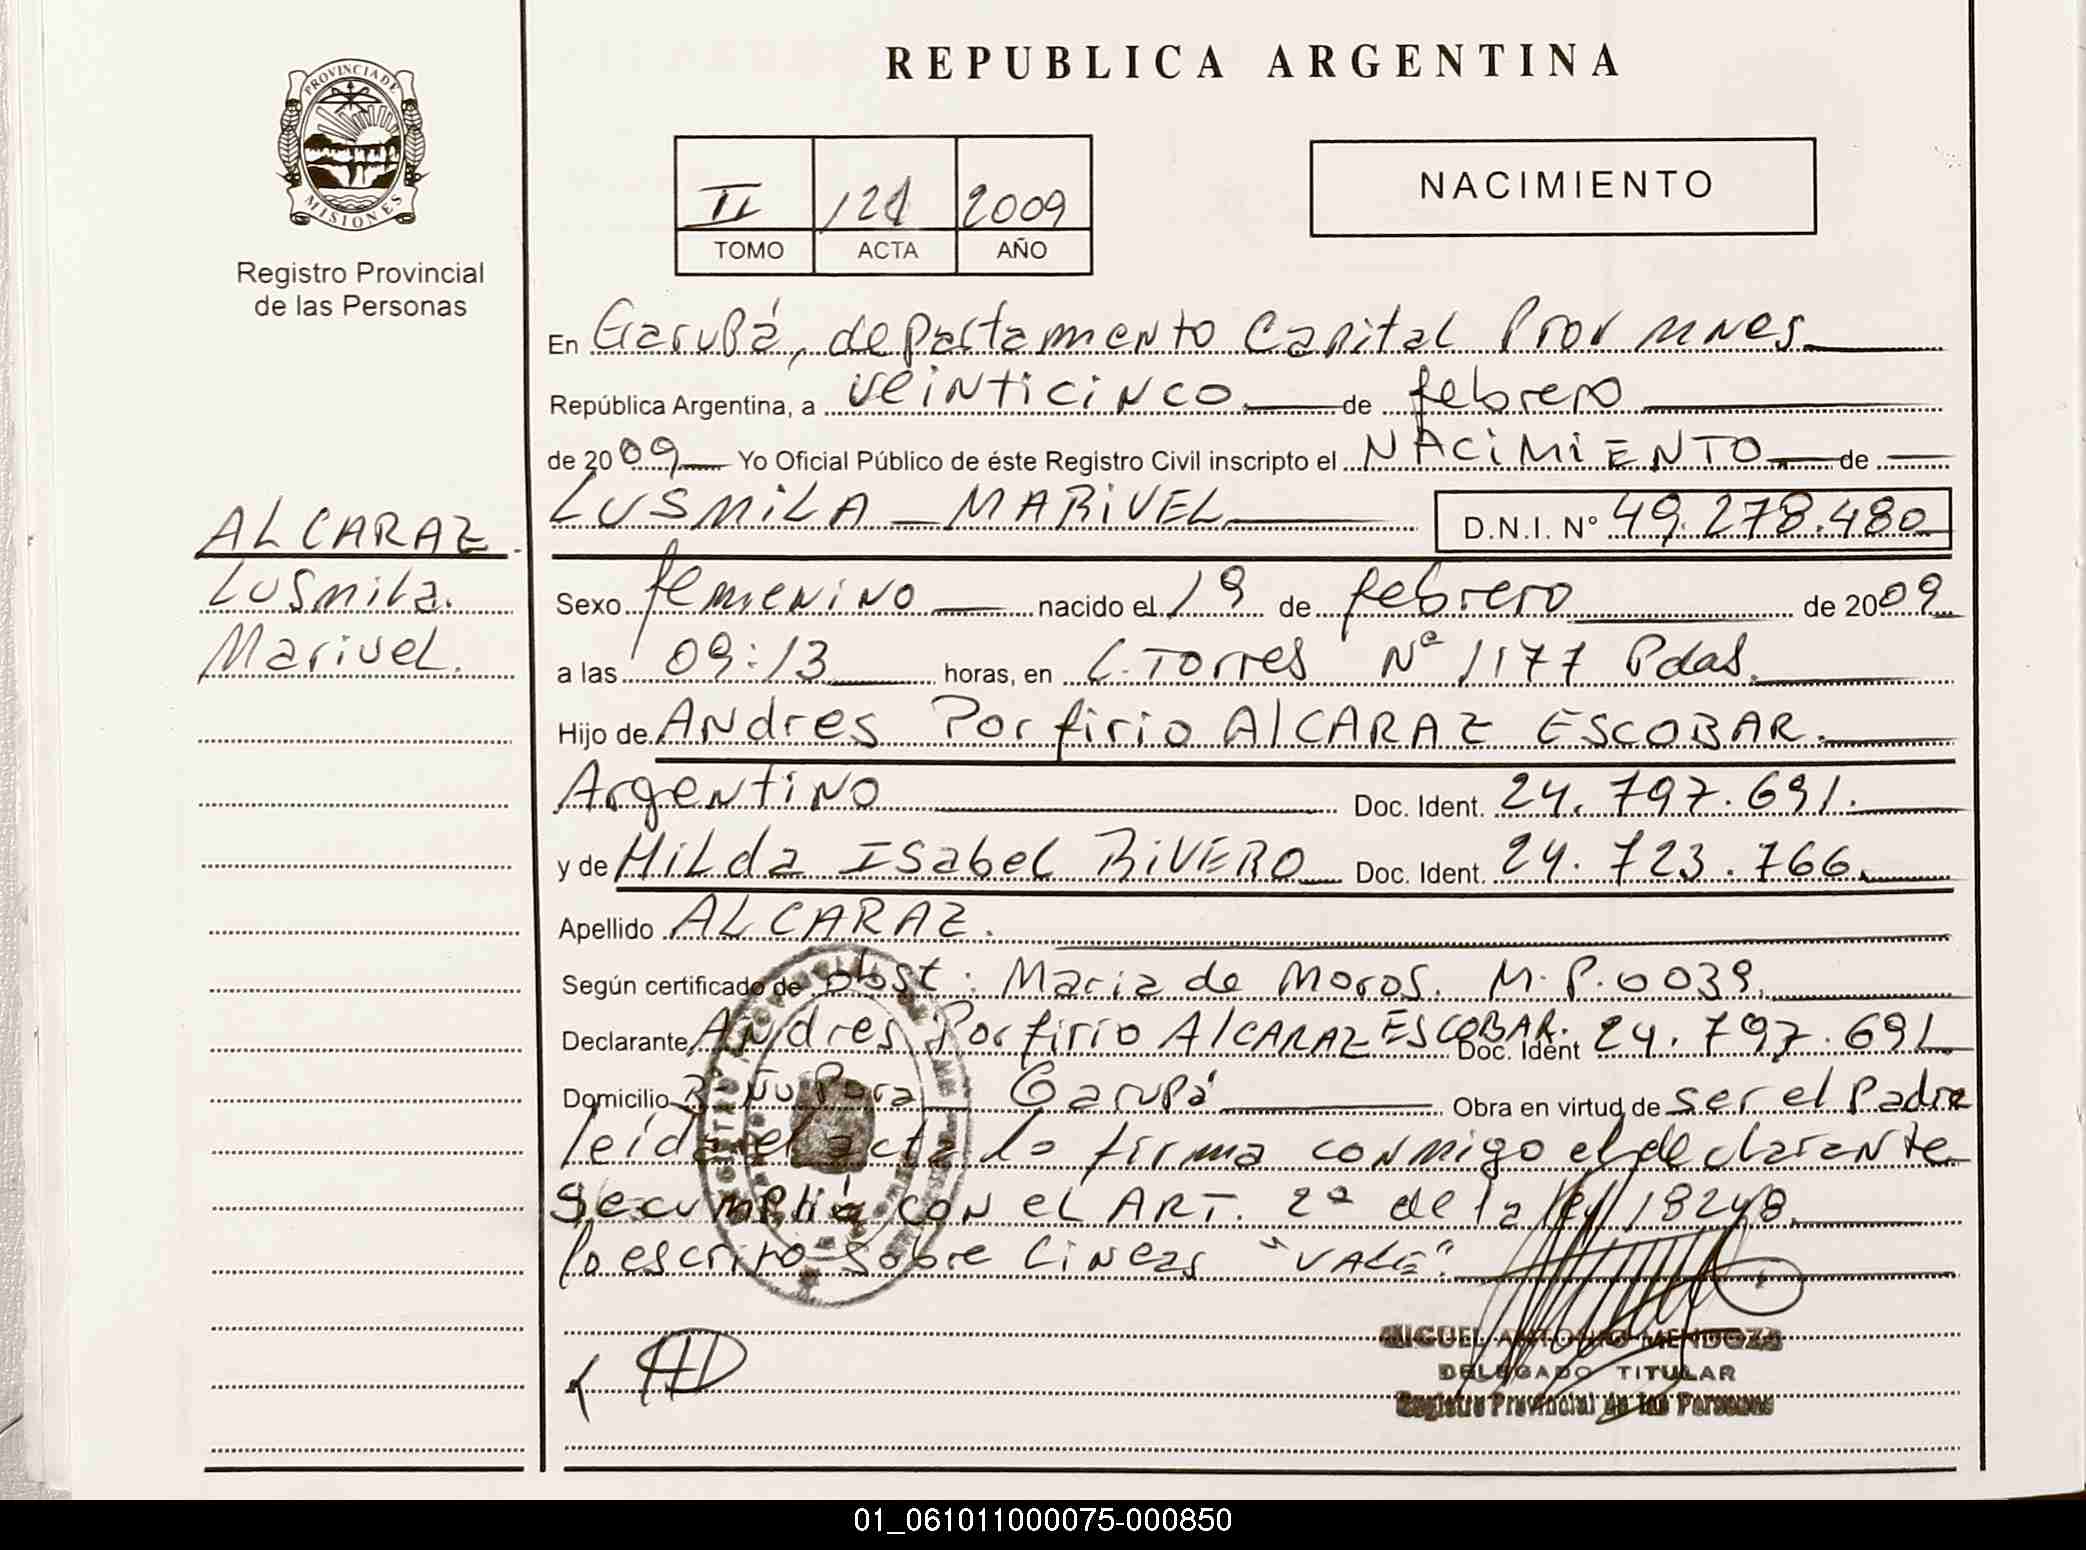 REPUBLICA ARGENTINA
PROVINCIA DE
MISIONES
Registro Provincial
de las Personas
II 121 2009
TOMO ACTA AÑO
NACIMIENTO
En Garupá, departamento Capital Prov mnes
República Argentina, a veinticinco de febrero
de 2009 Yo Oficial Público de éste Registro Civil inscripto el NACIMIENTO de
LUSMILA MARIVEL D.N.I. Nº 49.278.480
ALCARAZ
Lusmila.
Marivel.
Sexo femenino nacido el 19 de febrero de 2009
a las 09:13 horas, en L. Torres Nº 1177 Pdas.
Hijo de Andres Porfirio AlCARAZ ESCOBAR.
Argentino Doc. Ident. 24.797.691.
y de Hilda Isabel RIVERO Doc. Ident. 24.723.766.
Apellido ALCARAZ.
Según certificado de obst: Maria de Moros. M.P.0039.
Declarante Andres Porfirio AlCARAZ ESCOBAR. Doc. Ident 24.797.691
Domicilio Ñu Pora Garupá Obra en virtud de ser el Padre
leida el acta la firma conmigo el declarante
Se cumplió con el ART. 2º de la ley 18248.
lo escrito sobre lineas "VALE".
MIGUEL ANTONIO MENDOZA
DELEGADO TITULAR
Registro Provincial de las Personas
01_061011000075-000850